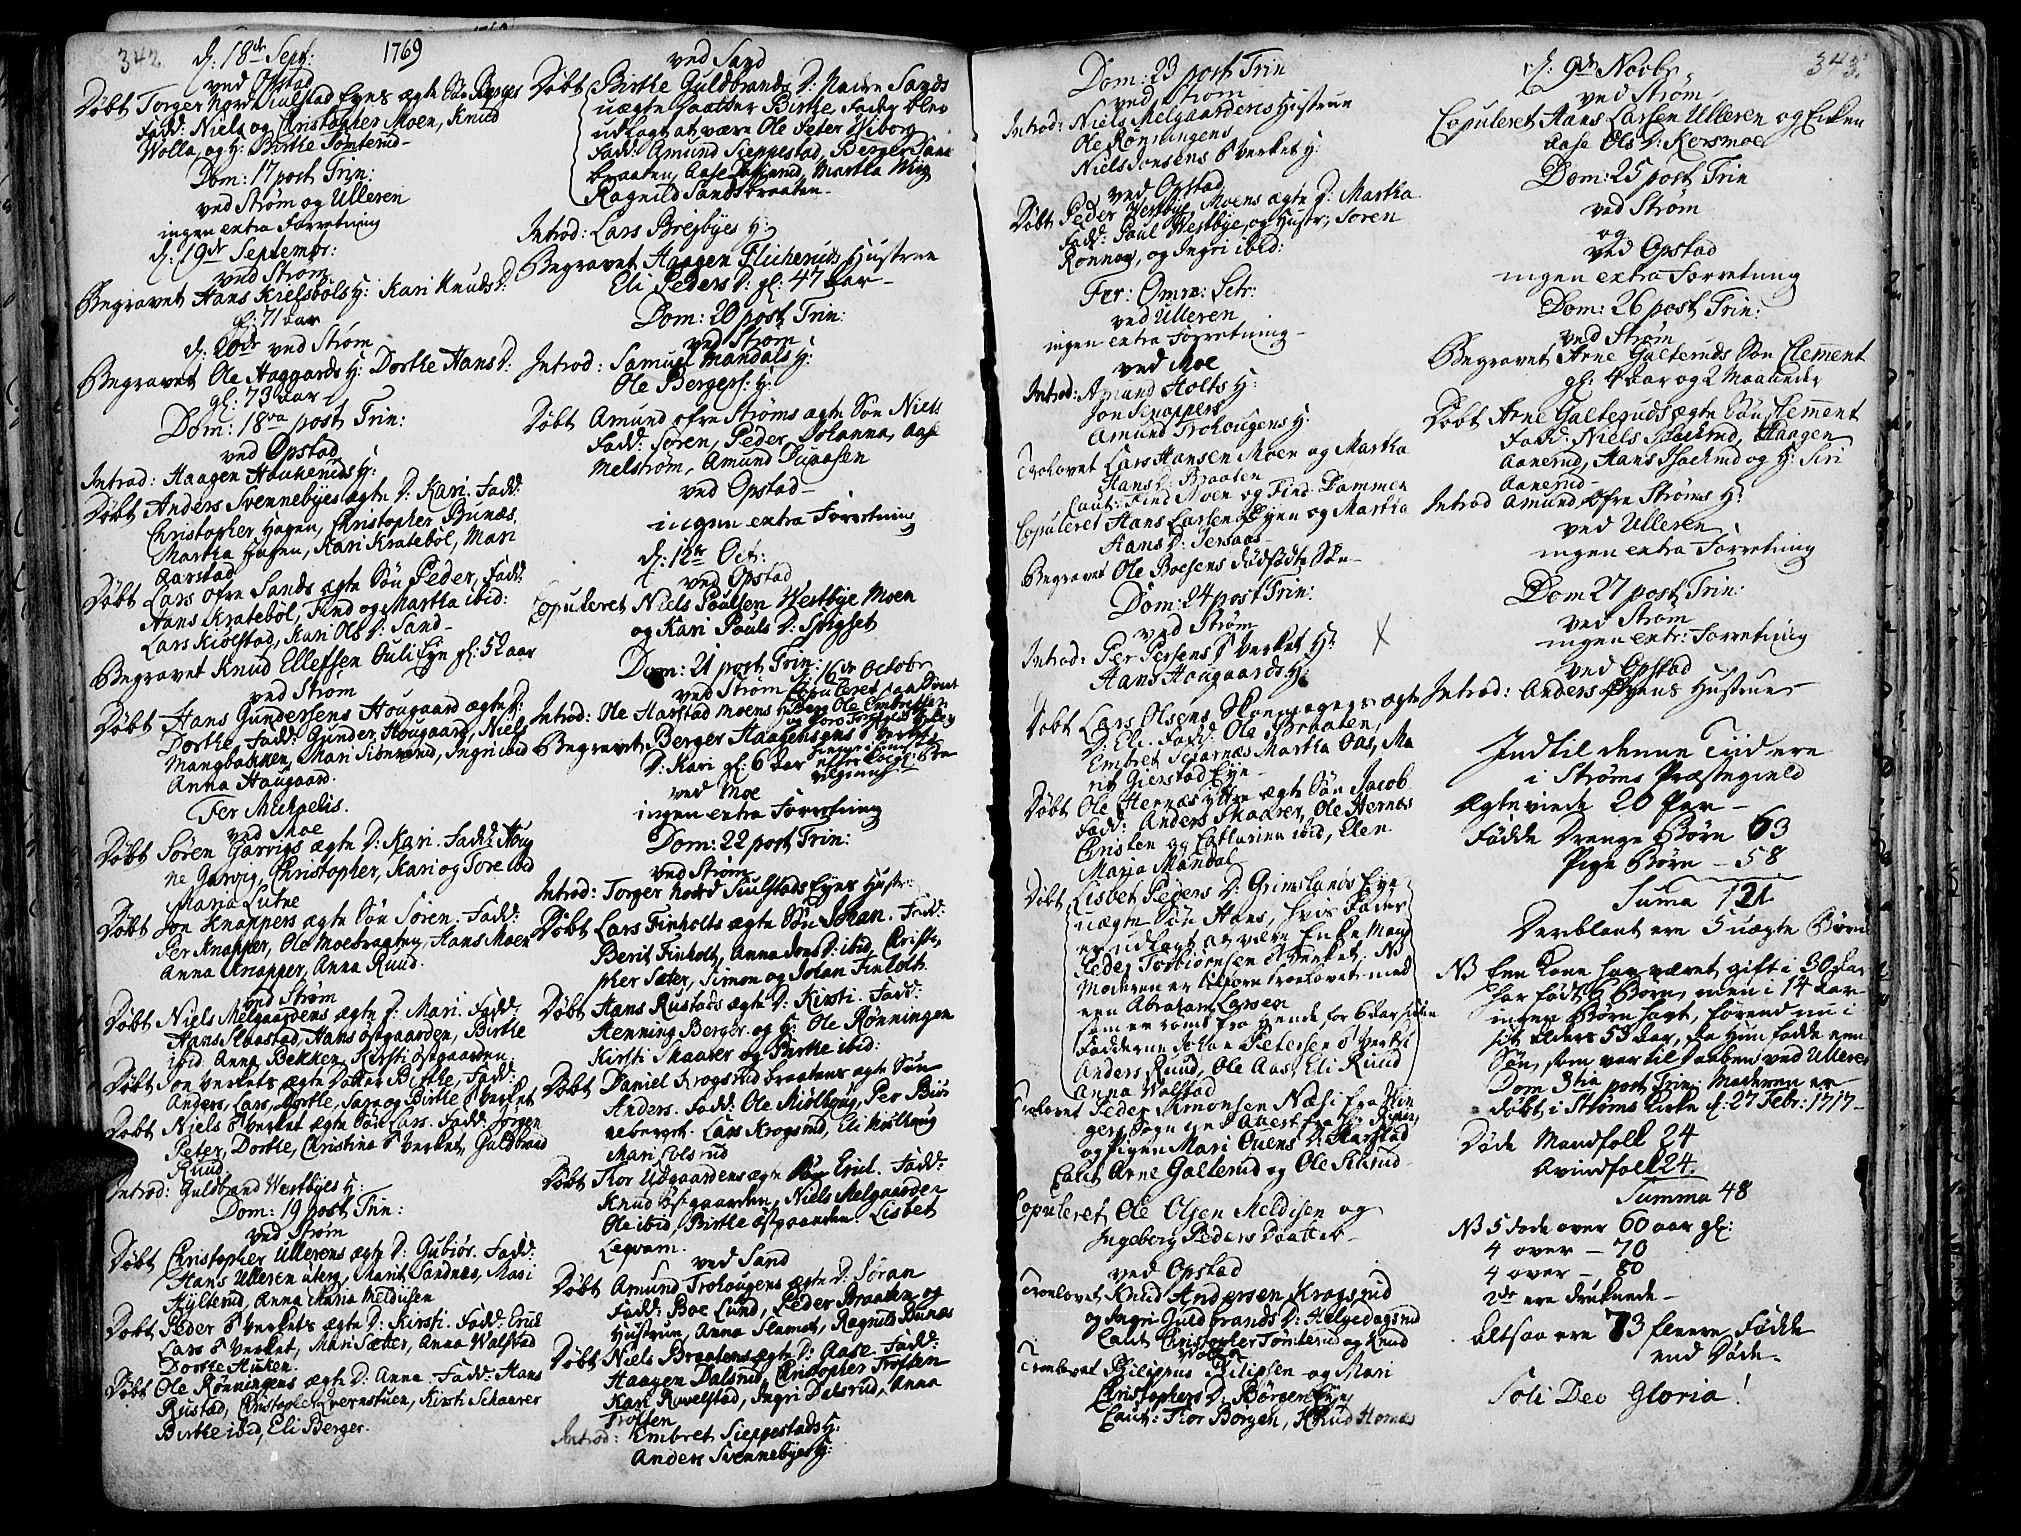 342.
1769
d: 18de Sept:
ved Opstad
Døbt Torger Nord Kiulstad Eyes ægte Søn Berger
Fadd: Niels og Christopher Moen, Knud
Wolla, og H: Birthe Tomterud
Dom: 17 post Trin:
ved Strøm og Ulleren
ingen extra Forretning
d: 19de Septembr:
ved Strøm
Begravet Hans Kielsbøls H: Kari Knuds D:
gl: 71 aar
d: 20de ved Strøm
Begravet Ole Haagards H: Dorthe Hans D:
gl: 73 aar
Dom: 18va post Trin:
ved Opstad
Introd: Haagen Haukeruds H:
Døbt Anders Svennebyes ægte D: Kari. Fadd:
Christopher Hagen, Christopher Bunæs,
Martha Hagen, Kari Kratebøl, Mari
Aarstad
Døbt Lars øfre Sands ægte Søn Peder, Fadd:
Hans Kratebøl, Find og Martha ibid:
Lars Kiølstad, Kari Ols D: Sand
Begravet Knud Ellefsen Ouli Eye gl: 52 aar
ved Strøm
Døbt Hans Gundersens Hougaard ægte D:
Dorthe. Fadd: Gunder Hougaard, Niels
Mangbakken, Mari, Ingri ibid
Anna Haugaard.
Fer Michaelis.
ved Moe
Døbt Søren Garvigs ægte D: Kari. Fadd: Hog
ne Garvig, Christopher, Kari og Tore ibid
Maria Lutne
Døbt Jon Knappers ægte Søn Søren. Fadd:
Per Knapper, Ole Moesbragten, Hans Moen
Anna Knapper, Anna Ruud.
ved Strøm
Døbt Niels Melgaardens ægte D: Mari. Fadd:
Hans Ilbostad, Hans Østgaarden, Birthe
ibid, Anna Bekken, Kirsti Østgaarden
Døbt Jon Verkets ægte Datter Birthe, Fadd:
Anders, Lars, Dorthe, Sara og Birthe Verket
Døbt Niels Verket ægte Søn Lars. Fadd: Jørgen
Peter, Dorthe, Christina Verket, Guldbrand
Ruud
Introd: Guldbrand Westbyes H:
Dom: 19 post Trin:
ved Strøm
Døbt Christopher Ullerens ægte D: Gubiør. Fadd:
Hans Ulleren, Marit Sandnes, Mari
Hylterud, Anna Maria Meldisen
Døbt Peder Verkets ægte D: Kirsti. Fadd: Erich
Lars Verket, Mari Sætter, Anna Walstad
Dorthe Huken.
Døbt Ole Rønningens ægte D: Anna. Fadd: Hans
Rustad, Christopher Qvernstuen, Kirsti Schaarer
Birthe ibid, Eli Berger.
ved Sand
Døbt Birthe Guldbrands D: Nedre Sands
uægte Daatter Birthe. Fader blev
udlagt at være Ole Peter Wiborg
Fadd: Amund Sieppestad, Berger Sands
braaten, Aase, Martha Wiig
Ragnild Sandsbraaten
Introd: Lars Breybyes H:
Begravet Haagen Flicheruds Hustrue
Eli Peders D: gl: 47 aar
Dom: 20 post Trin:
ved Strøm
Introd: Samuel Mandals H:
Ole Bergers: H:
Døbt Amund øfre Strøms ægte Søn Niels
Fadd: Søren, Peder, Johanna, Aase
Melstrøm, Amund Duaasen
ved Opstad
ingen extra Forretning
d: 12te Oct:
ved Opstad
Copuleret Niels Poulsen Westbye Moen
og Kari Pouls D: Spigset
Dom: 21 post Trin:
ved Strøm
d: 16de Octobr
Introd: Ole Harstad Moens H:
Begravet Berger Haagensens Verket
D: Kari gl: 6 aar
ved Moe
ingen extra Forretning
Dom: 22 post Trin:
ved Strøm
Introd: Torger Nord Kiulstads Eyes Hustr:
Døbt Lars Finholts ægte Søn Johan. Fadd:
Berit Finholt, Anna Jons D: ibid, Christo-
pher Sæter, Simon og Johan Finholt.
Døbt Hans Rustads ægte D: Kirsti. Fadd:
Henning Berger og H: Ole Rønningen
Kirsti Skaarer og Birthe ibid:
Døbt Daniel Krogsrud braatens ægte Søn
Anders. Fadd: Ole Miølhoug, Per Biør
neberget. Lars Krogsrud, Eli Miølhoug
Mari Solsrud
Døbt Thor Udgaardens ægte Søn Erich. Fadd:
Knud Østgaarden, Niels Melgaarden
Ole ibid, Birthe Østgaarden. Lisbet
Leqvam.
ved Sand
Døbt Amund Trohougens ægte D: Søran
Fadd: Boe Lund, Peder Braaten og
Hustrue, Anna Slemst, Ragnild Bunæs
Døbt Niels Braatens ægte D: Aase. Fadd:
Haagen Dalsrud, Christopher Troften
Kari Rovelstad, Ingri Dalsrud, Anna
Troften
Introd: Embret Sieppestads H:
Anders Svennebyes H:
343.
Dom: 23 post Trin
ved Strøm
Introd: Niels Melgaardens Hustrue
Ole Rønningens
Niels Jonsens Verket H:
ved Opstad
Døbt Peder Westbye Moens ægte D: Martha
Fadd: Paul Westbye, og Hustr; Søren
Rønnog, og Ingri ibid:
Fer: Omn: Sctr:
ved Ulleren
ingen extra Forretning
ved Moe
Introd: Amund Holts H:
Jon Knappers
Amund Trohougens H:
Trolovet Lars Hansen Moen og Martha
Hans D: Braaten
Caut: Find Moen og Find Dammen
Copuleret Hans Larsen Eyen og Martha
Hans D: Persaas
Begravet Ole Boesens dødfødte Søn
Dom: 24 post Trin:
ved Strøm
Introd: Per Persens Verket H:
Hans Hougaards H:
Døbt Lars Olsens Skomagers ægte
D: Eli. Fadd: Ole Braaten,
Embret Scharnæs, Martha Aas, Ma
rit Gierstad Eye
Døbt Ole Hernæs yttre ægte Søn Jacob
Fadd: Anders Skaarer, Ole Hernæs
Christen og Catharina ibid, Elen
Maria Mandal
Døbt Lisbet Peders D: Grimslands Eye
uægte Søn Hans, hvis Fader
er udlagt at være Enke Mand
Peder Torbiørnsen Verket. NB
Moderen er tilforn trolovet med
een Abraham Larsen
som er rømt fra hende for 6 aar siden
Fadderne Johan Petersen Verket
Anders Ruud, Ole Aas, Eli Ruud
Anna Walstad
Trolovet Peder Simonsen Næsi fra Win
ger Sogn
og Pigen Mari Ovens D: Harstad
Caut Arne Galterud og Ole Schrud
Copuleret Ole Olsen Meldisen og
Ingeborg Peders Daatter
ved Opstad
Troelovet Knud Andersen Krogsrud
og Ingri Guldbrands D: Helgedagsrud
Caut Christopher Tomterud og Knud
Wolla
Troelovet Philippus Philipsen og Mari
Christophers D: Børgen Eye
Caut: Thor Børgen, Knud Hornæs
d: 9de Novbr
ved Strøm
Copuleret Hans Larsen Ulleren og Enken
Aase Ols D: Kersmoe
Dom: 25 post Trin
ved Strøm
og
ved Opstad
ingen extra Forretning
Dom: 26 post Trin:
ved Strøm
Begravet Arne Galteruds Søn Clement
gl: 4 aar og 2 Maaneder
Døbt Arne Galteruds ægte Søn Clement
Fadd: Niels, Haagen
Aanerud, Hans og H: Siri
Aanerud
Introd Amund Øfre Strøms H:
ved Ulleren
ingen extra Forretning
Dom 27 post Trin:
ved Strøm
ingen extr: Forretning
ved Opstad
Introd: Anders Eyens Hustrue
Indtil denne Tiid ere
i Strøms Præstegield
Ægteviede 20 Par
Fødde Drenge Børn 63
Pige Børn – 58
Suma 121
Deriblant ere 5 uægte Børn
NB Een Kone har været gift i 30 Aar
har født 6 Børn, men i 14 aar
ingen Børn havt, førend nu i
sit Alders 53 aar, da hun fødde een
Søn, som var til Daaben ved Ulleren
Dom 3tia post Trin: Moderen er
døbt i Strøms Kirke d: 27 Febr: 1717
Døde Mandfolk 24
Qvindfolk 24.
Summa 48
NB 5 døde over 60 aar gl:
4 over – 70
4 over – 80
2de ere druknede
altsaa ere 73 fleere Fødde
end Døde.
Soli Deo Gloria!